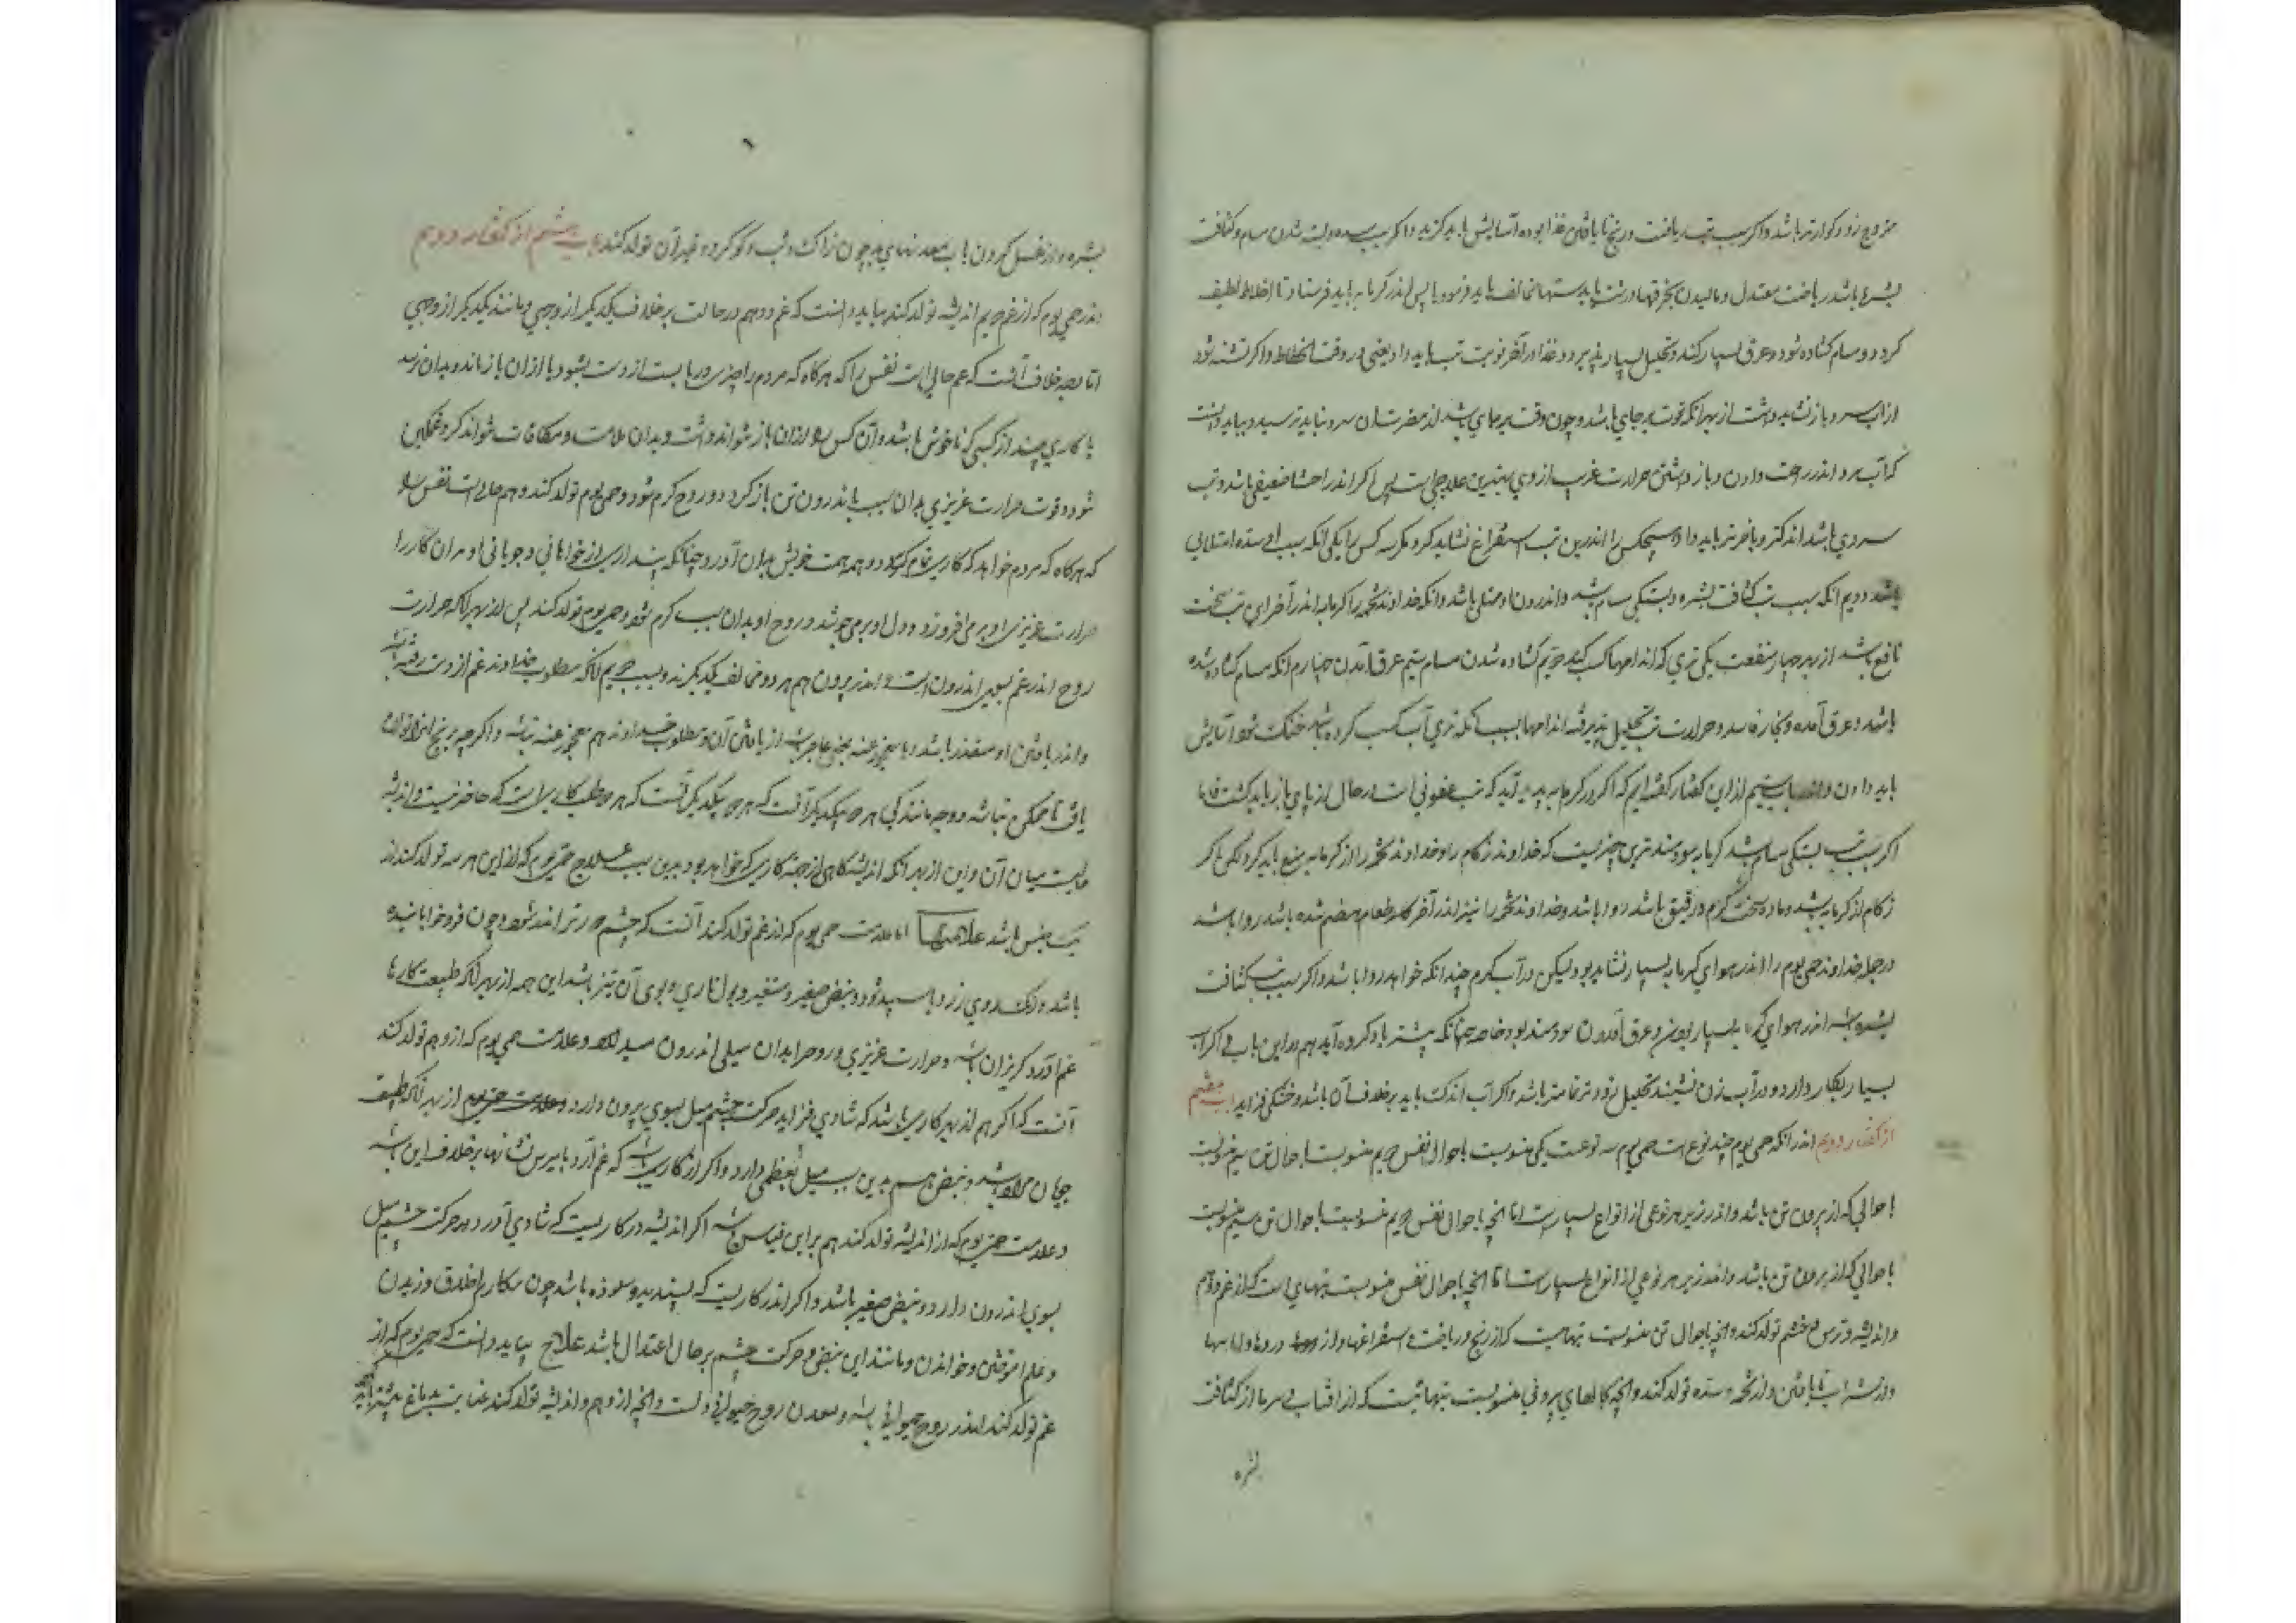 زود گوارتر باشد و اگر سبب تب ریاضت و رنج نایافتن غذا بوده آسایش باید گزید و اگر سبب سده و بسته شدن مسام و کثافت
بشره باشد ریاضت معتدل و مالیدن بخرقهاء درشت باید بدستهای مخالف باید فرمود یا پس اندر کرمابه باید فرستاد تا اخلاط لطیف
کردد و مسام کشاده شود و عرق بسیار کند و تحلیل بسیار پذیرد و غذا در آخر نوبت تب باید داد یعنی در وقت انحطاط و اکر تشنه شود
از آب سرد باز نشاید داشت از بهر آنکه قوت بر جای باشد و چون قوت بر جای باشد از مضرت آن سرد نباید ترسید و بباید دانست
که آب سرد اندر راحت دادن و باز داشتن حرارت غریب از وی بهترین علاجی است پس اکر اندر احشا ضعیفی باشد و تب
سردی باشد اندکتر و باخرتر باید داد و هیچکس را اندرین تب استفراغ نشاید کرد مکر سه کس را یکی آنکه سبب او سده امتلایی
باشد دویم آنکه سبب تب کثافت بشره و بستکی مسام باشد و اندرون او ممتلی باشد و آنکه خداوند تخمه را کرمابه اندر آخر این تب سخت
نافع باشد از بهر چهار منفعت یکی تری که اندامها کسب کند دویم کشاده شدن مسام سیم عرق آمدن چهارم آنکه مسام کشاده شده
باشد و عرق آمده و بخار فاسد و حرارت تب تحلیل پذیرفته اندامها بسبب آنکه تری آب کسب کرده باشد خنک شود و آسایش
باید دادن و اندر باب سیم از این کفتار کفته‌ایم که اکر در کرمابه پدید آید که تب عفونی است در حال از پای باز باید کشت فاما
اکر سبب تب بستکی مسام باشد کرمابه سودمندترین چیزیست که خداوند زکام را و خداوند تخمه را از کرمابه منع باید کرد لکن اکر
زکام از کرما باشد و ماده سخت کرم و رقیق باشد روا باشد و خداوند تخمه را نیز اندر آخر که طعام هضم شده باشد روا باشد
در جمله خداوند حمی یوم را اندر هوای کرمابه بسیار نشاید بود لیکن در آب کرم چندانکه خواهد روا باشد و اکر سبب تب کثافت
بشره باشد اندر هوای کرمابه بسیار بودن و عرق آمدن سودمند بود خاصه چنانکه پیشتر یاد کرده آید هم در این باب فی اکر آب
بسیار بکار دارد و در آب زن نشیند تحلیل زودتر و تمامتر باشد و اکر آب اندک باید برخلاف آن باشد و خشکی فزاید باب هفتم
از کفتار دویم اندر آنکه حمی یوم چند نوع است حمی یوم سه نوعست یکی منسوبست باحوال نفس دویم منسوبست باحوال تن سیم منسوبست
باحوالی که از بیرون تن باشد و اندر زیر هر نوعی از انواع بسیارست اما آنچه باحوال نفس دویم منسوبست باحوال تن سیم منسوبست
باحوالی که از بیرون تن باشد و اندر زیر هر نوعی از انواع بسیارست اما آنچه باحوال نفس منسوبست تبهایی است که از غم و هم
و اندیشه و ترس و خشم تولد کند و آنچه باحوال تن منسوبست تبهاست که از رنج و ریاضت و استفراغها و از دردها و آماسها
و از شراب نایافتن و از تخمه و سده تولد کند و آنچه بحالهای بیرونی منسوبست تبهائیست که از آفتاب و سرما از کثافت
بشره
بشره و از غسل کردن بآب معدنهای بد چون زاک و شب و کوکرد و غیر آن تولد کند باب هشتم از کفتار دویم
اندر حمی یوم که از غم و هم و اندیشه تولد کند بباید دانست که غم و هم دو حالت برخلاف یکدیکر از وجهی و مانند یکدیکر از وجهی
اما وجه خلاف آنست که غم حالی است نفس را که هرکاه که مردم را چیزی دربایست از دست بشود یا از آن باز ماند و بدان نرسد
یا کاری بیند از کسی که ناخوش باشد و آن کس را از آن باز نتواند داشت و بدان ملامت و مکافات نتواند کرد غمکین
شود و قوت حرارت غریزی بدان سبب باندرون تن باز کردد و روح کرم شود و حمی یوم تولد کند و هم حالی است نفس را
که هرکاه که مردم خواهد که کاری تمام کند و همه همت خویش بدان آورد چنانکه پنداری از خواهانی و جویانی او مر آن کار را
حرارت غریزی او برمی‌افروزد و دل او برمی‌جوشد و روح او بدان سبب کرم شود و حمی یوم تولد کند پس از بهر آنکه حرارت
روح اندر غم بسوی اندرون است و اندر بیرون هم هر دو مخالف یکدیکرند و بسبب دویم آنکه مطلوب خداوند غم از دست رفته باشد
و اندر یافتن او متعذر باشد و یا معجوز عنه یعنی عاجز باشد از یافتن آن و مطلوب خداوند هم معجوز عنه نباشد و اکرچه برنج آنرا توان
یافت ناممکن نباشد و وجه مانندکی هر دو بیکدیکر آنست که هر دو طلب کاری است که حاضر نیست و اندیشه
حالیست میان آن و این از بهر آنکه اندیشه کاهی از جهت کاری که خواهد بود بدین سبب علاج حمی یوم که از این هر سه تولد کند از
یک جنس باشد علامتها اما علامت حمی یوم که از غم تولد کند آنست که چشم دورتر اندر شود و چون فروخوابانیده
باشد و رنک روی زرد یا سپید شود و نبض صغیر و متغیر و بول ناری و بوی آن تیز باشد این همه از بهر آنکه طبیعت کارها
غم‌آور و کریزان باشد و حرارت غریزی و روح را بدان میلی اندرون میدارد و علامت حمی یوم که از وهم تولد کند
آنست که اکر هم از بهر کاری باشد که شادی فزاید حرکت چشم میل بسوی بیرون دارد از بهر آنکه طبیعت
جویان مراد باشد و نبض هم بدین سبب میل بعظمی دارد و اکر از کاری باشد که غم آرد یا ترس نشانها برخلاف این باشد
و علامت حمی یوم که از اندیشه تولد کند هم براین قیاس باشد اکر اندیشه در کاریست که شادی آورد حرکت چشم میل
بسوی اندرون دارد و نبض صغیر باشد و اکر اندر کاریست که پسندیده و ستوده باشد چون مکارم اخلاق ورزیدن
و علم آموختن و خواندن و مانند این نبض و حرکت چشم بر حال اعتدال باشد علاج بباید دانست که حمی یوم که از
غم تولد کند اندر روح حیوانی باشد و معدن روح حیوانی دل است و آنچه از وهم و اندیشه تولد کند عنایت بدماغ بیشتر باید